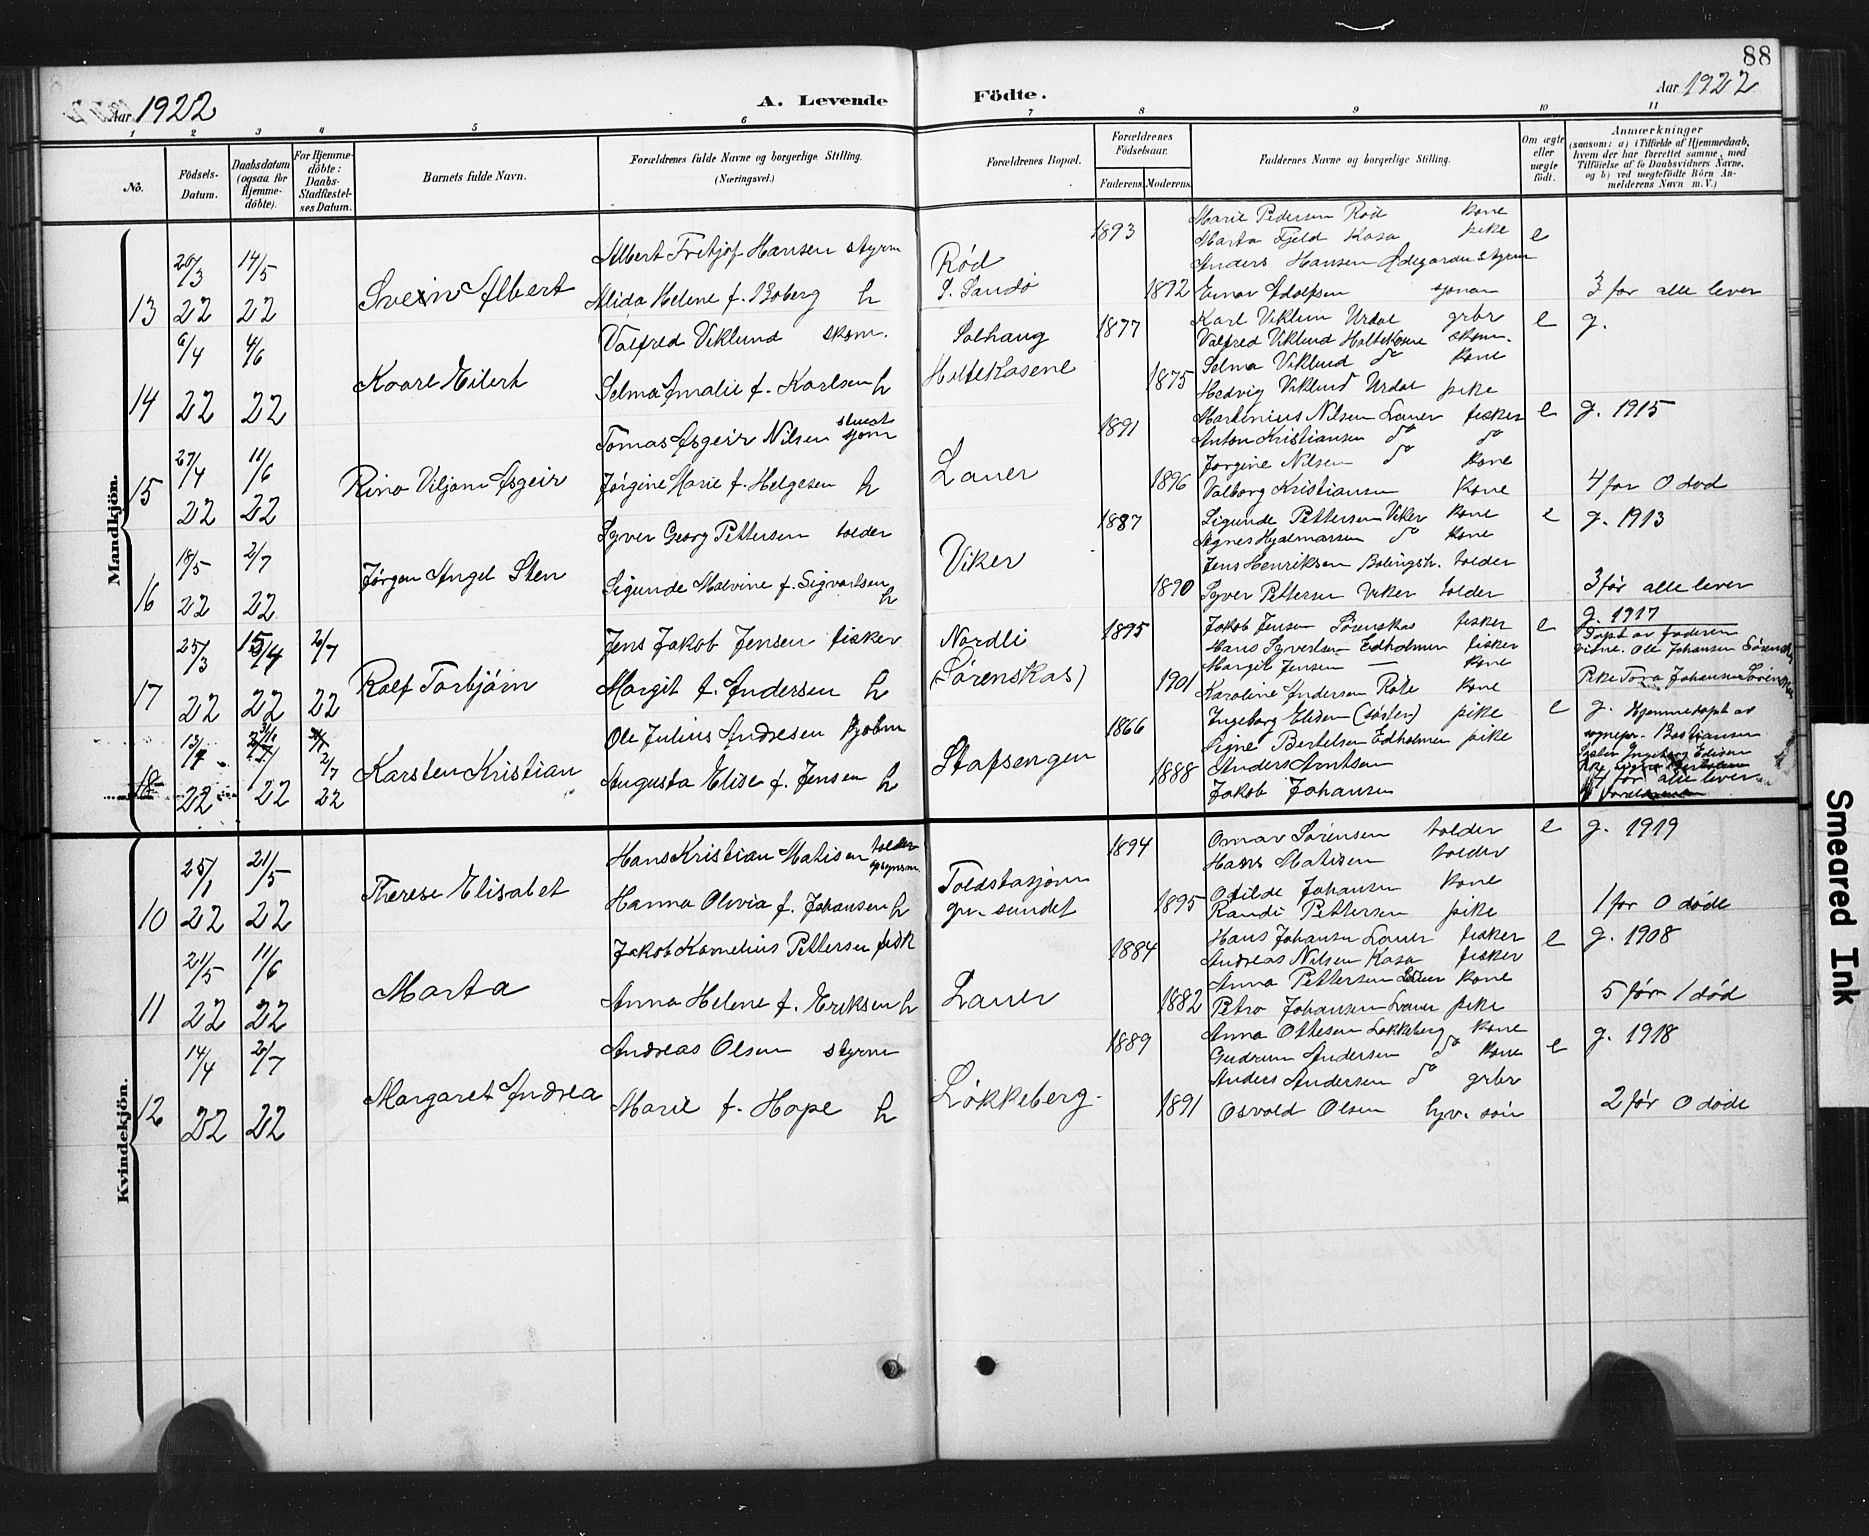 88
Aar 1922 A. Levende Födte. Aar 1922
1 2 3 4 5 6 7 8 9 10 11
No.
Födsels-Datum.
Daabsdatum (ogsaa for Hjemme-döbte).
For Hjemme-döbte: Daabs-Stadfæstel-ses Datum.
Barnets fulde Navn.
Forældrenes fulde Navne og borgerlige Stilling.
(Næringsvei.)
Forældrenes Bopæl.
Forældrenes Födselsaar.
Faderens. Moderens.
Faddernes Navne og borgerlige Stilling.
Om ægte eller uægte födt.
Anmærkninger
(saasom: a) i Tilfælde af Hjemmedaab,
hvem der har forrettet samme, med
Tilföielse af to Daabsvidners Navne,
og b) ved uægtefödte Börn An-
melderens Navn m. V.)
Mandkjön.
13 20/3 22 14/5 22 Svein Albert
Albert Fritjof Hansen styrm
Alida Helene f. Boberg h
Rød
S. Sandö
1893 1892
Marie Pedersen Rød kone
Marta Fjeld Kasa pike
Anders Hansen Ødegården styrm
Einar Adolfsen sjöman
e
3 før alle lever
14 6/4 22 4/6 22 Kaare Eilert
Valfred Viklund skom.
Selma Amalie f. Karlsen h
Solhaug
Holtekasene
1877 1875
Karl Viklun Urdal grbr
Valfred Viklund Holtekasene skom.
Selma Viklund do kone
Hedvig Viklund Urdal pike
e
g.
15 27/4 22 11/6 22 Rino Viljam Asgeir
Tomas Asgeir Nilsen stuert sjøm
Jørgine Marie f. Helgesen h
Lauer
1891 1896
Martinius Nilsen Lauer fisker
Anton Kristiansen do do
Jørgine Nilsen do kone
Valborg Kristiansen kone
e
g. 1915
4 før 0 død
16 18/5 22 2/7 22 Jørgen Angel Sten
Syver Georg Pettersen tolder
Sigunde Malvine f. Sigvartsen h
Viker
1887 1890
Sigunde Pettersen Viker kone
Agnes Hjalmarsen do kone
Jens Henriksen Bølingsh. tolder
Syver Pettersen Viker tolder
e
g. 1913
3 før alle lever
17 25/3 22 15/4 22 2/7 22 Ralf Torbjørn
Jens Jakob Jensen fisker
Margit f. Andersen h
Nordli
(Sørenskas)
1895 1901
Jakob Jensen Sørenskas fisker
Hans Syvertsen Edholmen fisker
Margit Jensen — kone
Karoline Andersen Røte kone
e
g. 1917
Døpt av faderen
vitne. Ole Johansen Sørenskas
Pike Tora Johansen Sørenskas
18 13/7 22 22 2/7 22 Karsten Kristian
Ole Julius Andresen kjøbm
Augusta Elise f. Jensen h
Stafsengen
1866 1888
Ingeborg Elisen (søster) pike
Signe Bertelsen Edholmen pike
Anders Arntsen
Jakob Johansen
e
g. Hjemmedøpt av
sognepr. Bastiansen
4 før alle lever
Kvindekjön.
10 25/1 22 21/5 22 Therese Elisabet
Hans Kristian Matisen tolder opsynsm
Hanna Olivia f. Johansen h
Toldstasjonen
gr. sundet
1894 1895
Omar Sørensen tolder
Hans Matisen tolder
Otilde Johansen kone
Randi Pettersen pike
e
g. 1919
1 før 0 døde
11 21/5 22 11/6 22 Marta
Jakob Kornelius Pettersen fisk
Anna Helene f. Eriksen h
Lauer
1884 1882
Hans Johansen Lauer fisker
Andreas Nilsen Kasa fisker
Anna Pettersen Lauer kone
Petra Johansen Lauer pike
e
g. 1908
5 før 1 død
12 14/4 22 2/7 22 Margaret Andrea
Andreas Olsen styrm
Marie f. Hope h
Løkkeberg
1889 1891
Anna Ottesen Løkkeberg kone
Gudrun Andersen do kone
Anders Andersen do grbr
Osvald Olsen hyv. søn
e
g. 1918
2 før 0 døde
Smeared Ink